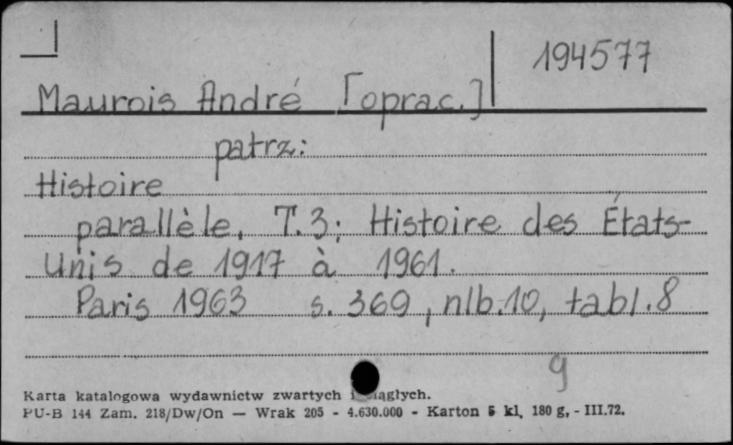 194577
Maurois André [oprac.]
patrz:
Histoire
parallèle, T.3: Histoire des États-
Unis de 1917 à 1961.
Paris 1963 s. 369, nlb.10, tabl.8
9
Karta katalogowa wydawnictw zwartych i ciągłych.
PU-B 144 Zam. 218/Dw/On — Wrak 205 - 4.630.000 - Karton 5 kl, 180 g, - III.72.